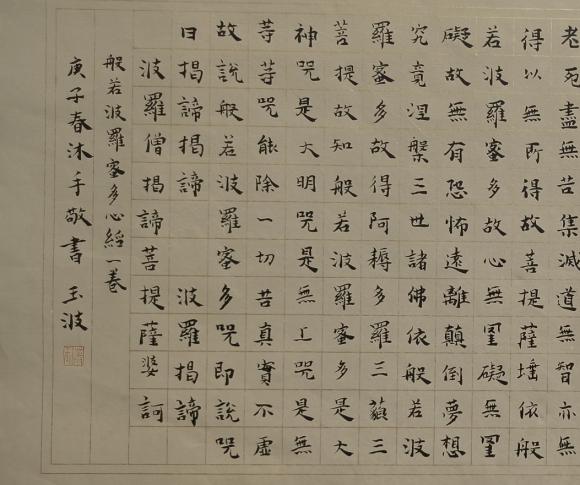 老死盡無苦集滅道無智亦無
得以無所得故菩提薩埵依般
若波羅蜜多故心無罣礙無罣
礙故無有恐怖遠離顛倒夢想
究竟涅槃三世諸佛依般若波
羅蜜多故得阿耨多羅三藐三
菩提故知般若波羅蜜多是大
神咒是大明咒是無上咒是無
等等咒能除一切苦真實不虛
故說般若波羅蜜多咒即說咒
曰揭諦揭諦 波羅揭諦
波羅僧揭諦菩提薩婆訶
般若波羅蜜多心經一卷
庚子春沐手敬書 玉波